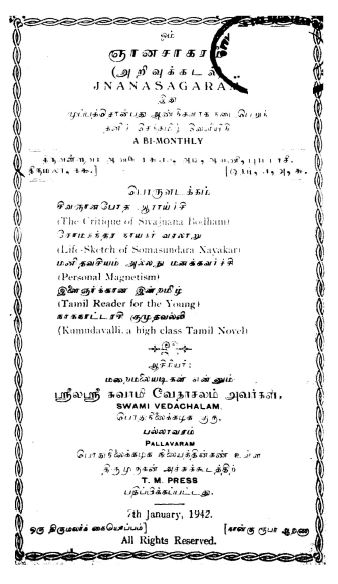 ஓம்
ஞானசாகர
(அறிவுக்கடல்
JNANASAGARAM
இது
முப்பத்தொன்பது ஆண்டுகளாக நடைபெறும்
A BI-MONTHLY
பொருளடக்கம்
சிவஞானபோத ஆராய்ச்சி
(The Critique of Sivajnana Bodham)
சோமசுந்தர நாயகர் வரலாறு
(Life-Sketch of Somasundara Nayakar)
மனிதவசியம் அல்லது மனக்கவர்ச்சி
(Personal Magnetism)
இளைஞர்க்கான இன்றமிழ்
(Tamil Reader for the Young)
நாகநாட்டரசி குமுதவல்லி
(Kumudavalli. a high class Tamil Novel)
ஆசிரியர்:
மறைமலையடிகள் என்னும்
ஸ்ரீலஸ்ரீ சுவாமி வேதாசலம் அவர்கள்,
SWAMI VEDACHALAM.
பொதுநிலைக்கழக குரு,
பல்லாவரம்
PALLAVARAM
பொதுநிலைக்கழக நிலையத்தின்கண் உள்ள
திருமுருகன் அச்சுக்கூடத்திற்
T. M. PRESS
பதிப்பிக்கப்பட்டது.
7th January, 1942.
ஒரு திருமலர்க் கையொப்பம்] [நான்கு ரூபா ஆறணா
All Rights Reserved.